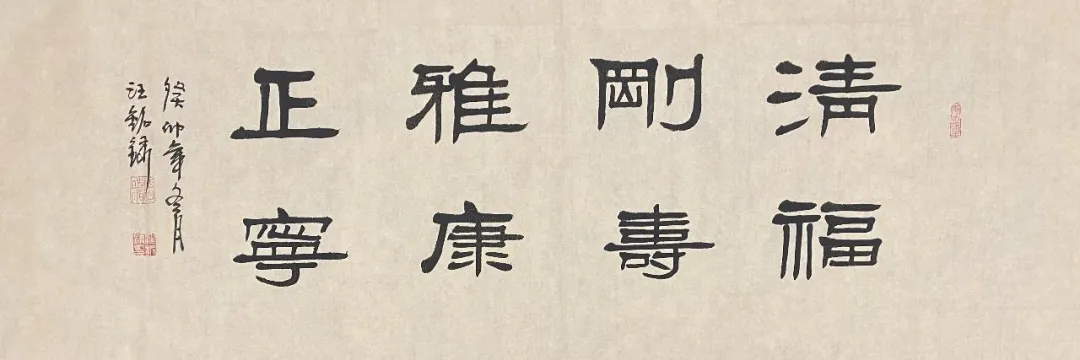 清剛雅正
福壽康寧
癸卯年冬月
汪銘